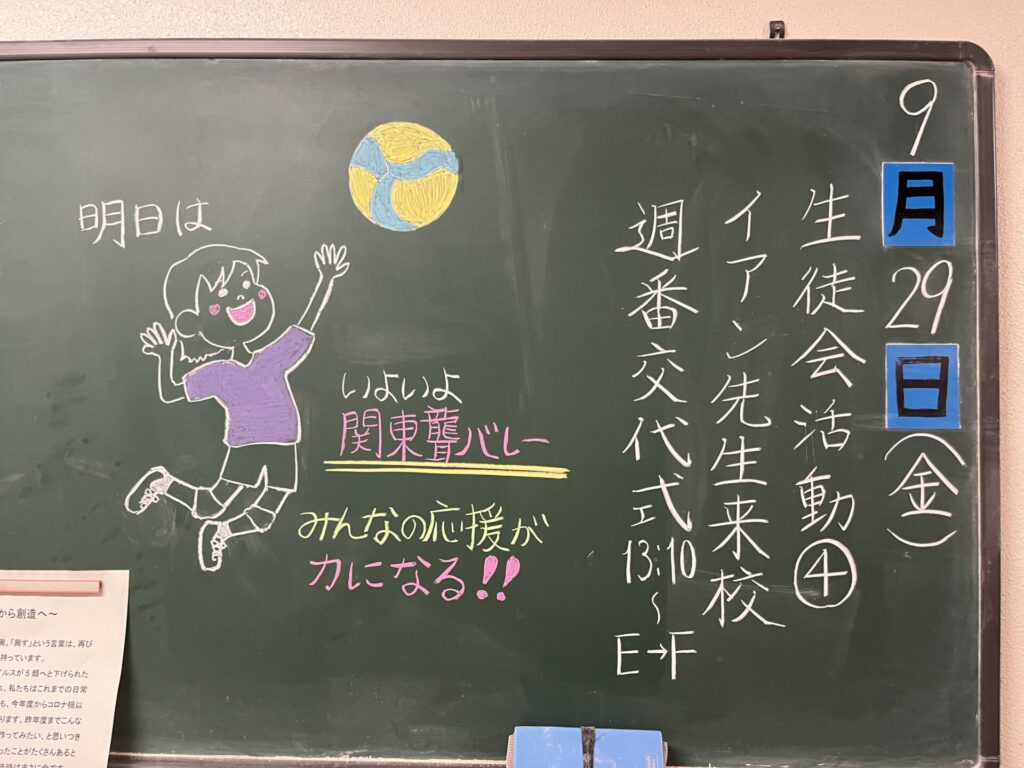 9月29日(金)
生徒会活動④
イアン先生来校
週番交代式13:10～
E→F
明日は
いよいよ
関東聾バレー
みんなの応援が
力になる!!
から創造へ～
「興す」という言葉は、再び
持っています。
イルスが5類へと下げられた
私たちはこれまでの日常
も、今年度からコロナ禍以
ります。昨年度までこんな
作ってみたい、と思いつき
ったことがたくさんあると